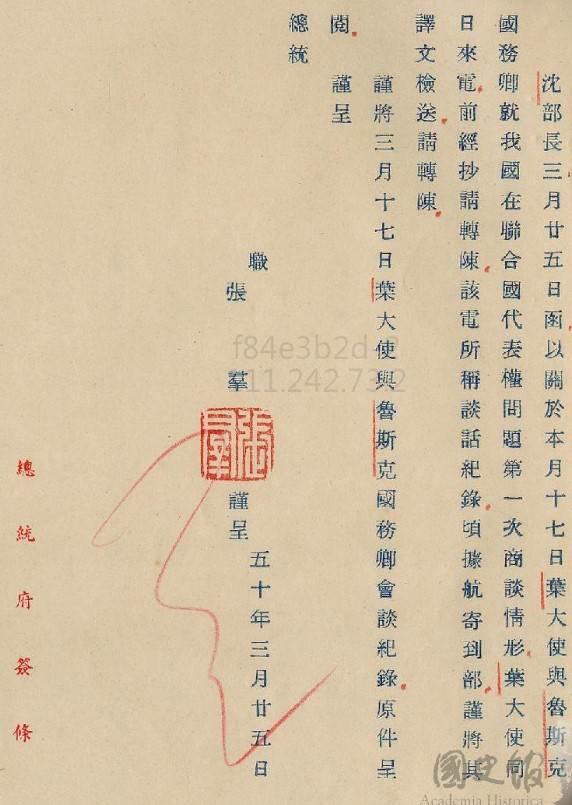 沈部長三月廿五日函以關於本月十七日葉大使與魯斯克
國務卿就我國在聯合國代表權問題第一次商談情形葉大使同
日來電前經抄請轉陳該電所稱談話紀錄頃據航寄到部謹將其
譯文檢送請轉陳
謹將三月十七日葉大使與魯斯克國務卿會談紀錄原件呈
閱 謹呈
總統
職
張 羣 謹呈
張羣
五十年三月廿五日
總統府簽條
國史館
Academia Historica
f84e3b2d
11.242.73.2